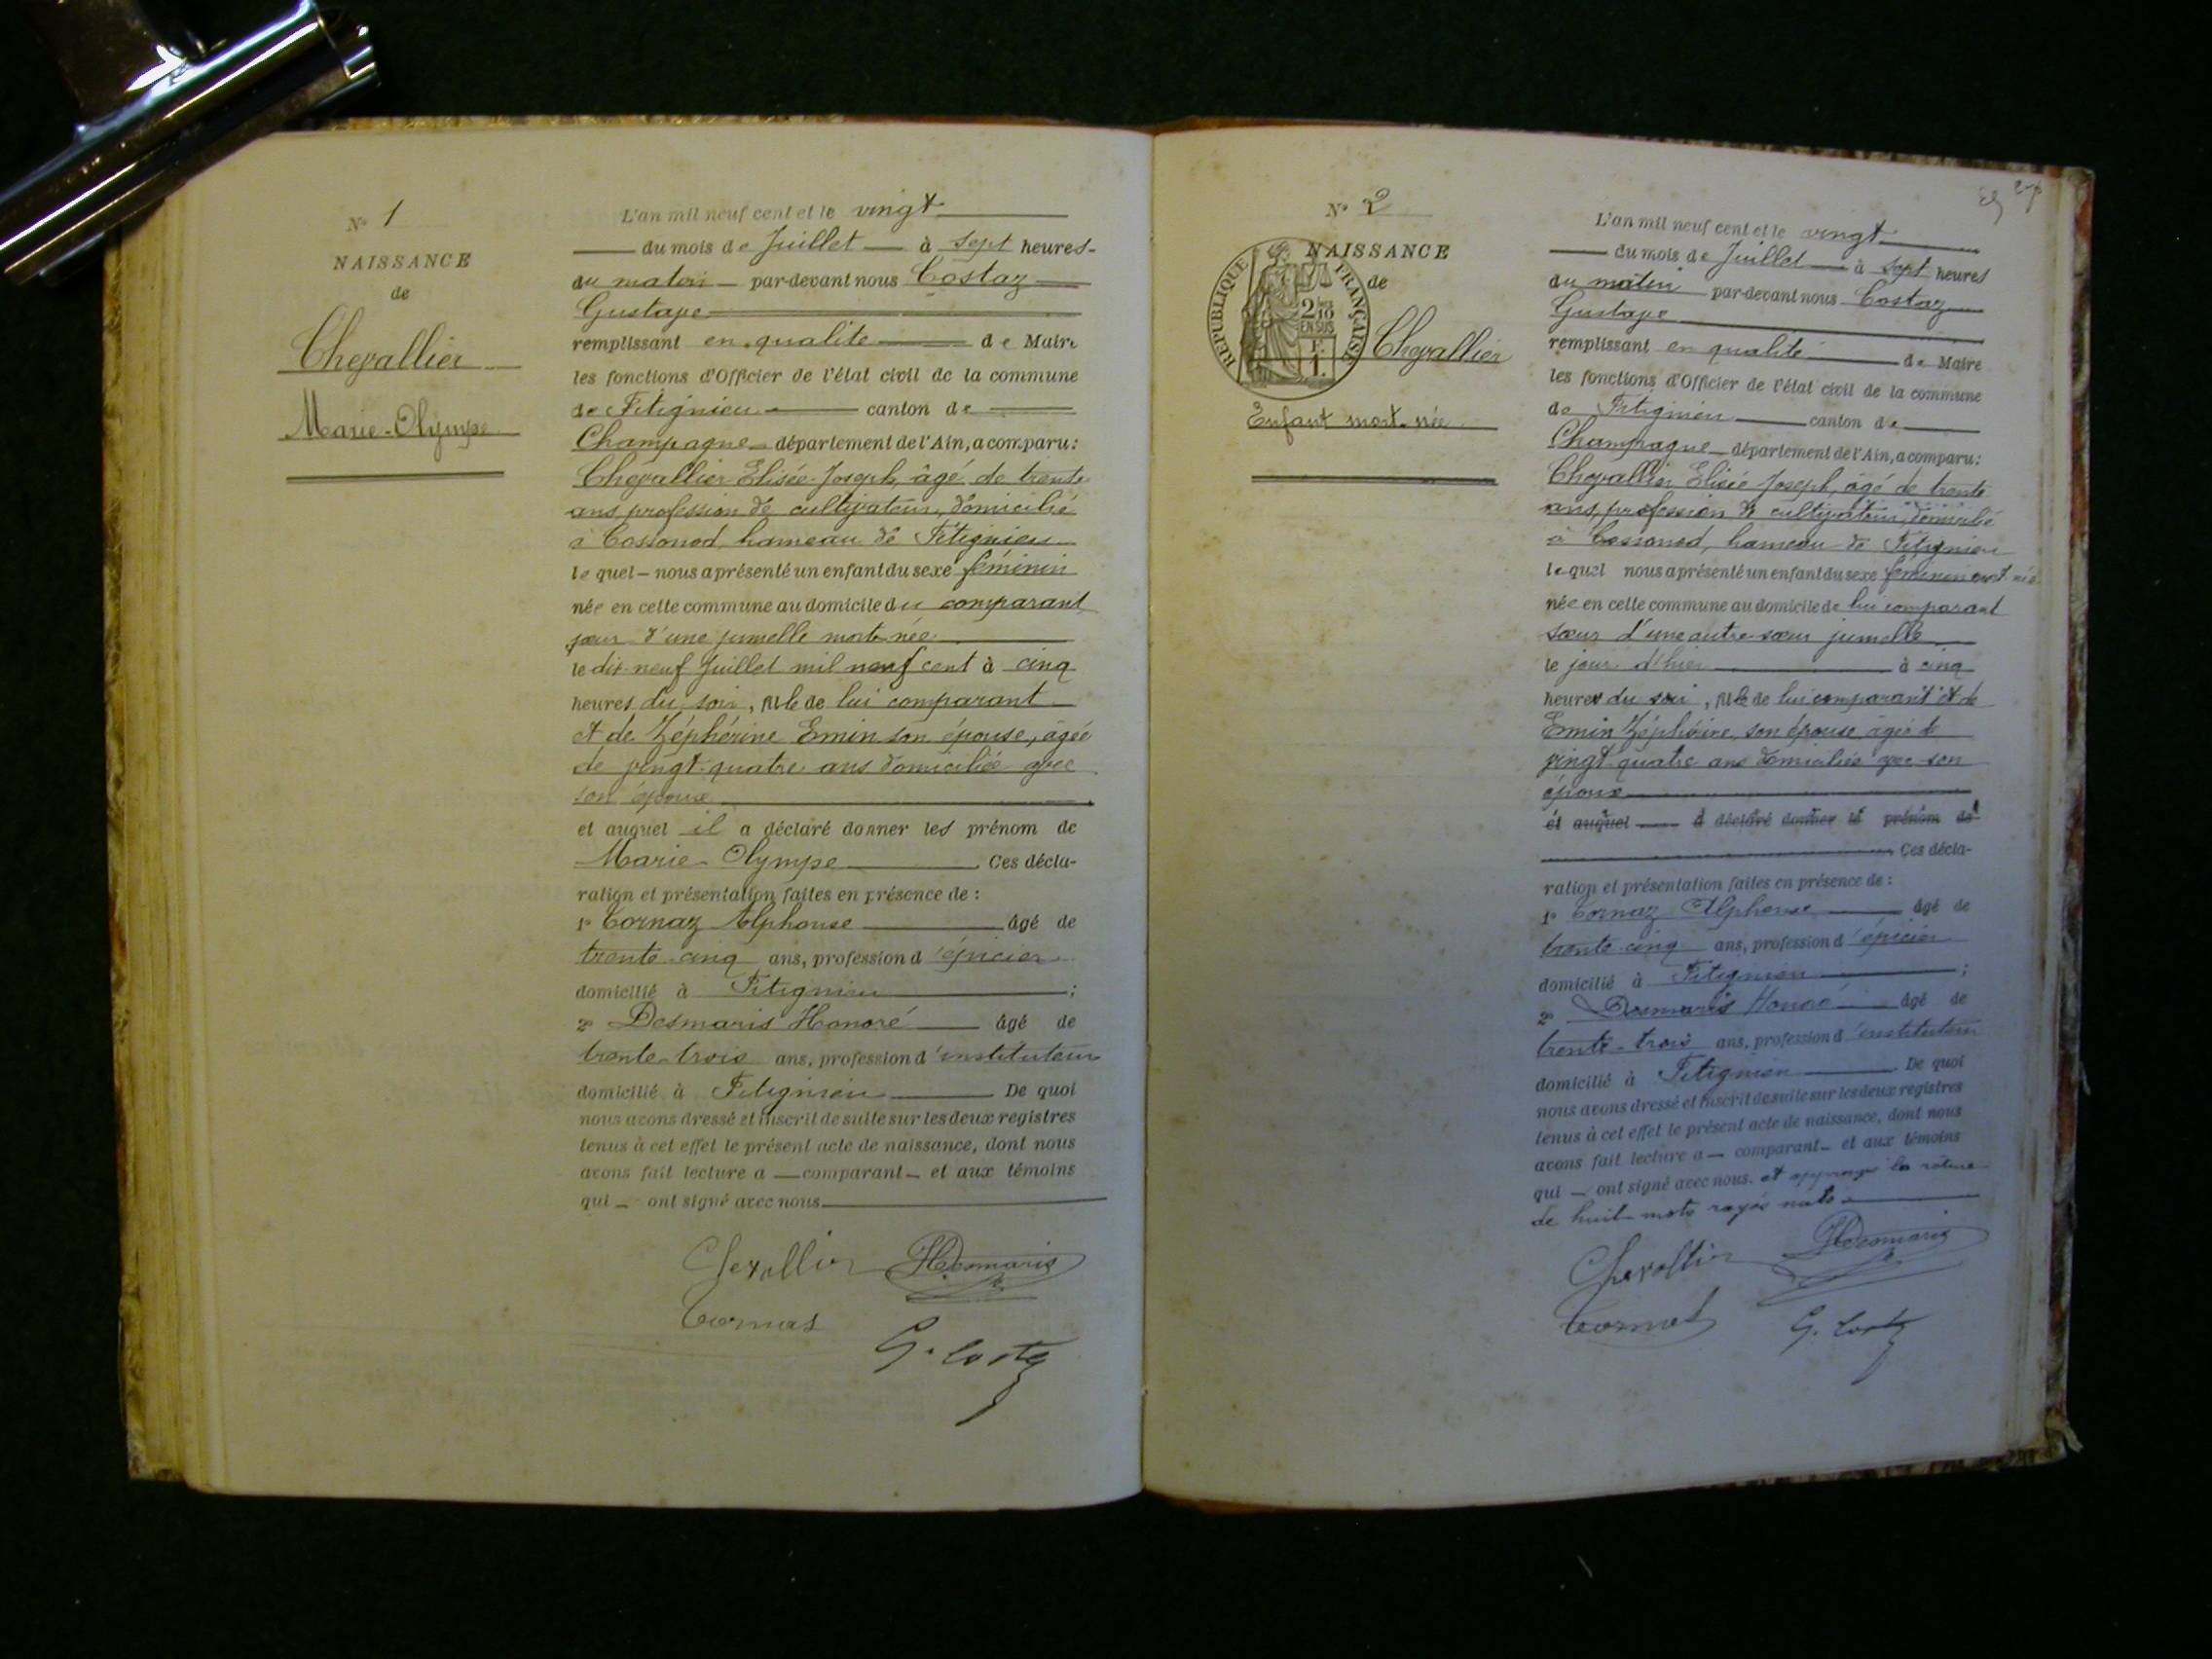 N° 1
NAISSANCE
de
Chevallier
Marie-Olympe
L'an mil neuf cent et le vingt
du mois de Juillet à sept heures
du matin par-devant nous Costaz
Gustave
remplissant en qualité de Maire
les fonctions d'Officier de l'état civil de la commune
de Fitignieu canton de
Champagne département de l'Ain, a comparu:
Chevallier Elisée Joseph, âgé de trente
ans, profession de cultivateur, domicilié
à Cossonod, hameau de Fitignieu
le quel nous a présenté un enfant du sexe féminin
née en cette commune au domicile du comparant
sœur d'une jumelle mort-née
le dix-neuf Juillet mil neuf cent à cinq
heures du soir, fille de lui comparant
et de Zéphérine Emin son épouse, âgée
de vingt-quatre ans domiciliée avec
son époux
et auquel il a déclaré donner les prénom de
Marie-Olympe Ces décla-
ration et présentation faites en présence de :
1° Cornaz Alphonse âgé de
trente-cinq ans, profession d'épicier
domicilié à Fitignieu ;
2° Desmaris Honoré âgé de
trente-trois ans, profession d'instituteur
domicilié à Fitignieu De quoi
nous avons dressé et inscrit de suite sur les deux registres
tenus à cet effet le présent acte de naissance, dont nous
avons fait lecture a comparant et aux témoins
qui ont signé avec nous
Chevallier HDesmaris
Cornaz
G. Costaz
N° 2
NAISSANCE
de
RÉPUBLIQUE FRANÇAISE
2/10
EN SUS
F.
1.
Chevallier
Enfant mort-née
L'an mil neuf cent et le vingt
du mois de Juillet à sept heures
du matin par-devant nous Costaz
Gustave
remplissant en qualité de Maire
les fonctions d'Officier de l'état civil de la commune
de Fitignieu canton de
Champagne département de l'Ain, a comparu:
Chevallier Elisée Joseph, âgé de trente
ans, profession de cultivateur, domicilié
à Cossonod, hameau de Fitignieu
le quel nous a présenté un enfant du sexe féminin mort née
née en cette commune au domicile de lui comparant
sœur d'une autre sœur jumelle
le jour d'hier à cinq
heures du soir, fille de lui comparant et de
Emin Zéphérine, son épouse âgée de
vingt quatre ans domiciliée avec son
époux
et auquel a déclaré donner le prénom de
Ces décla-
ration et présentation faites en présence de :
1° Cornaz Alphonse âgé de
trente-cinq ans, profession d'épicier
domicilié à Fitignieu ;
2° Desmaris Honoré âgé de
trente-trois ans, profession d'instituteur
domicilié à Fitignieu De quoi
nous avons dressé et inscrit de suite sur les deux registres
tenus à cet effet le présent acte de naissance, dont nous
avons fait lecture a comparant et aux témoins
qui ont signé avec nous et approuvé la rature
de huit mots rayés nuls
Chevallier HDesmaris
Cornaz G. Costaz